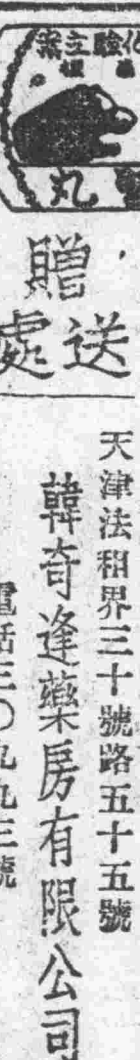 丸
贈送處
天津法租界三十號路五十五號
韓奇逢藥房有限公司
電話三〇九九三號